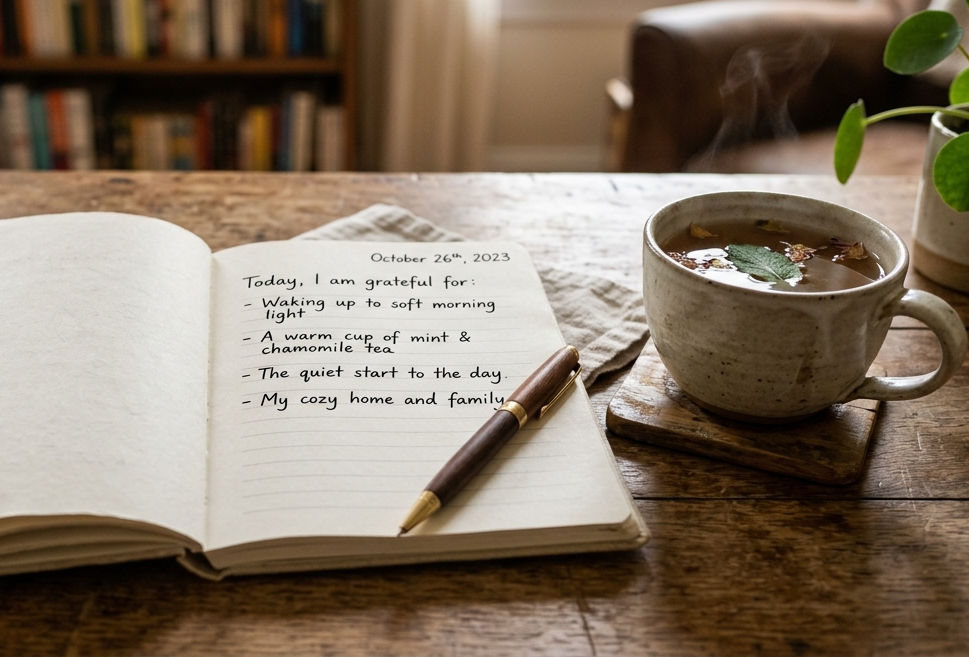 October 26th, 2023
Today, I am grateful for:
- Waking up to soft morning
light
- A warm cup of mint &
chamomile tea
- The quiet start to the day.
- My cozy home and family